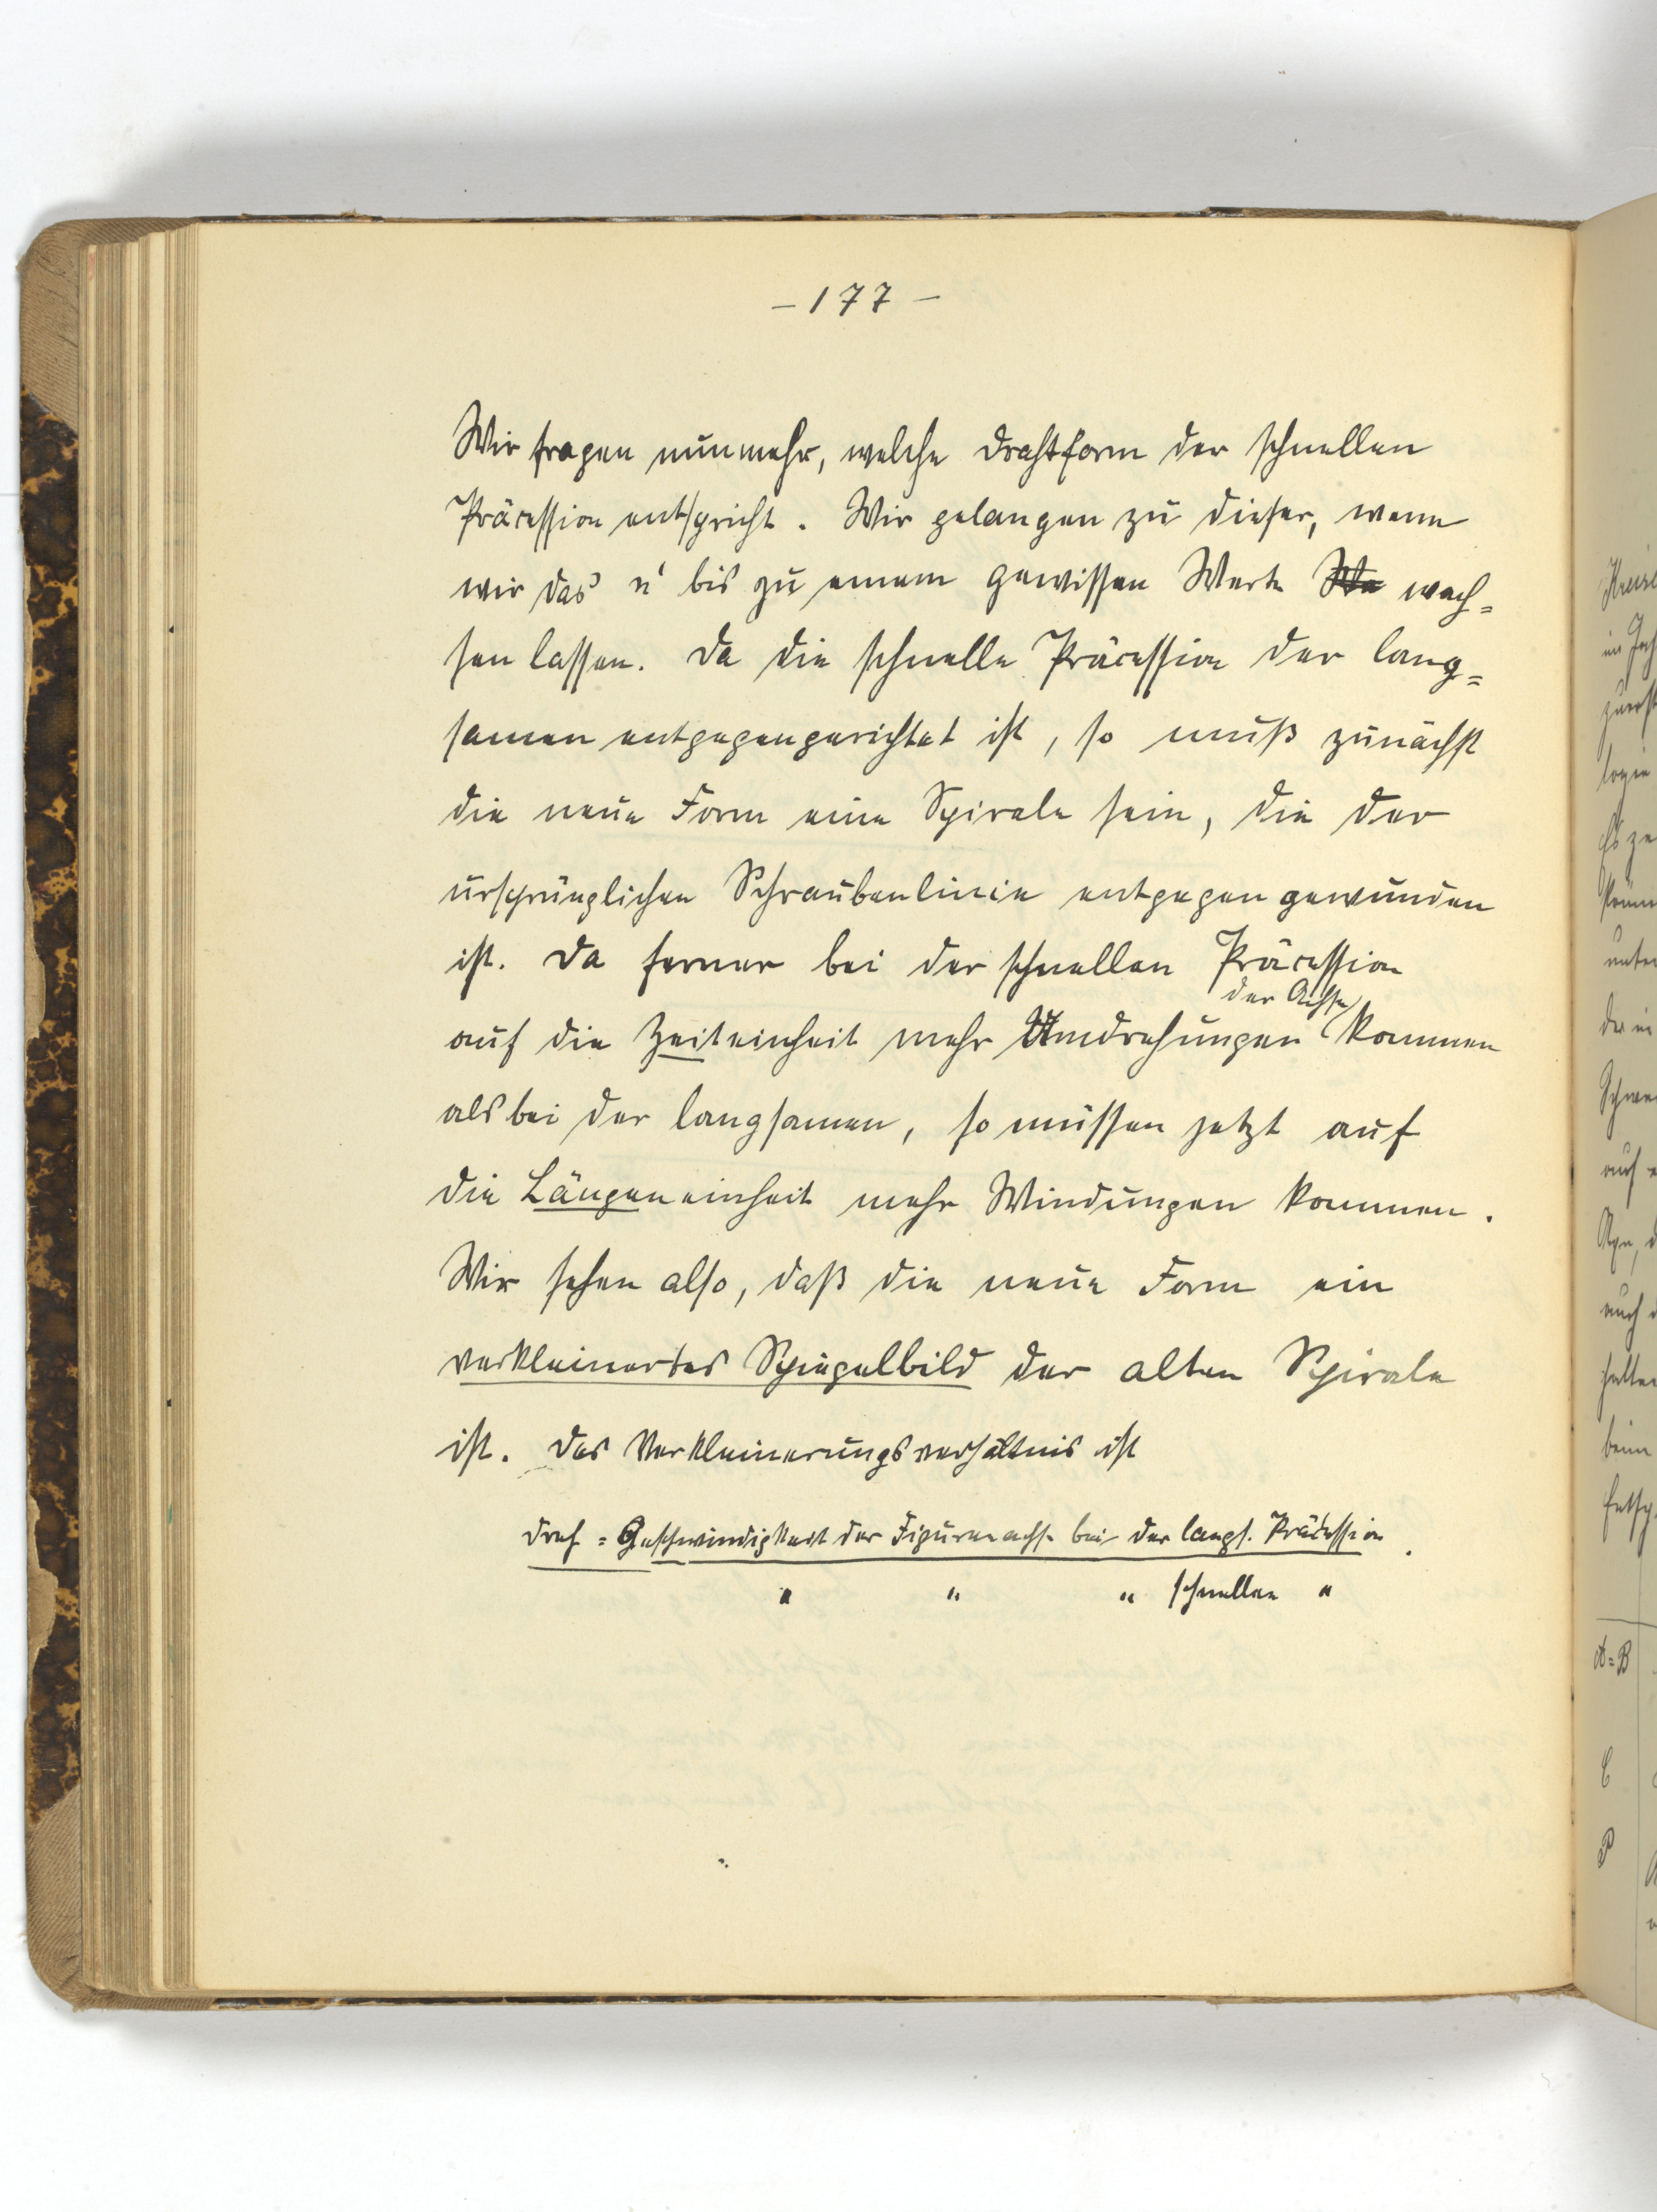 – 177 –
Wir fragen nunmehr, welche Drahtform der schnellen
Präcession entspricht. Wir gelangen zu dieser, wenn
wir das n' bis zu einem gewissen Werte wach=
sen lassen. Da die schnelle Präcession der lang=
samen entgegengerichtet ist, so muß zunächst
die neue Form eine Spirale sein, die der
ursprünglichen Schraubenlinie entgegen gewunden
ist. Da ferner bei der schnellen Präcession
der Achse
auf die Zeiteinheit mehr Umdrehungen kommen
als bei der langsamen, so müssen jetzt auf
die Längeneinheit mehr Windungen kommen.
Wir sehen also, daß die neue Form ein
verkleinertes Spiegelbild der alten Spirale
ist. Das Verkleinerungsverhältnis ist
Dreh = Geschwindigkeit der Figurenachse bei der langs. Präcession.
" " " schnellen "
A = B
C
P